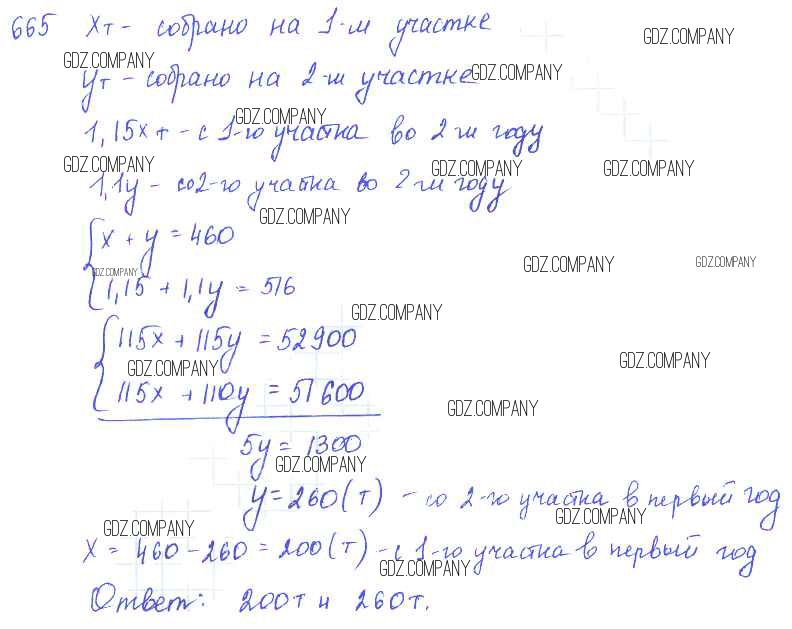 665 Xт - собрано на 1-м участке
GDZ.COMPANY
GDZ.COMPANY
Yт - собрано на 2-м участке
GDZ.COMPANY
GDZ.COMPANY
1,15x т - с 1-го участка во 2-м году
GDZ.COMPANY
GDZ.COMPANY
GDZ.COMPANY
1,1y - со 2-го участка во 2-м году
GDZ.COMPANY
x + y = 460
GDZ.COMPANY
GDZ.COMPANY
GDZ.COMPANY
1,15 + 1,1y = 516
GDZ.COMPANY
115x + 115y = 52900
GDZ.COMPANY
GDZ.COMPANY
115x + 110y = 51600
GDZ.COMPANY
5y = 1300
GDZ.COMPANY
y = 260 (т) - со 2-го участка в первый год
GDZ.COMPANY
GDZ.COMPANY
x = 460 - 260 = 200 (т) - с 1-го участка в первый год
GDZ.COMPANY
Ответ: 200т и 260т.